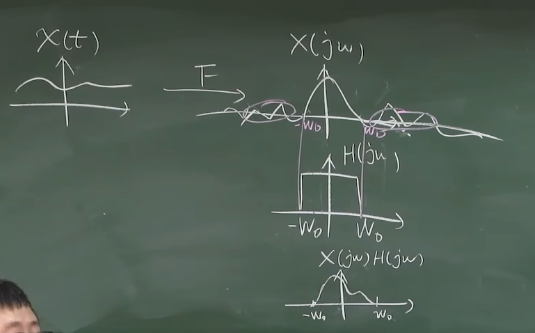 X(t)
F
X(jw)
-W0
W0
H(jw)
-W0
W0
X(jw)H(jw)
-W0
W0